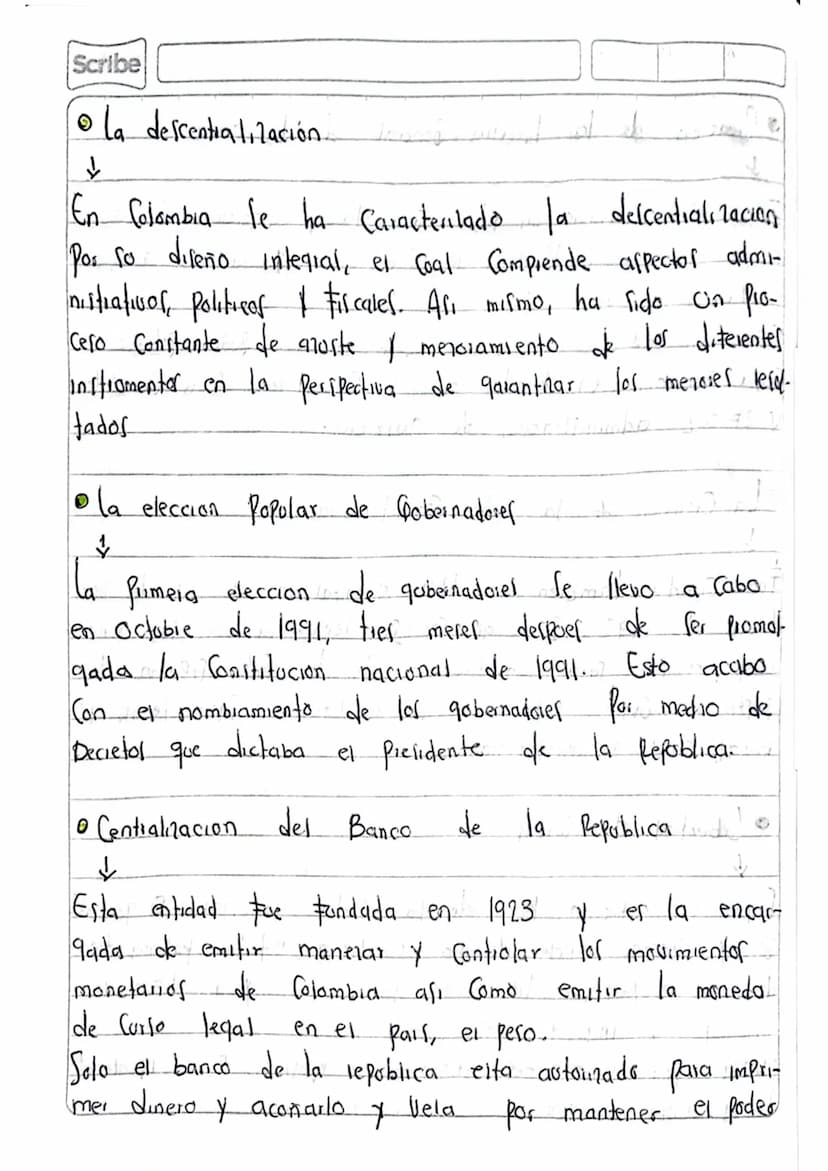 Scribe
La descentralización
En Colombia se ha caracterizado la descentralización
por su diseño integral, el cual comprende aspectos admi-
nistrativos, politicos y fiscales. Asi mismo, ha sido un pro-
ceso constante de ajuste y mejoramiento de los diferentes
instrumentos en la perspectiva de garantizar los mejores resul-
tados
La eleccion popular de Gobernadores
La primera eleccion de gobernadores se llevo a cabo
en Octubre de 1991, tres meses despues de ser promul-
gada la Constitucion nacional de 1991. Esto acabo
con el nombramiento de los gobernadores por medio de
Decretos que dictaba el presidente de la Republica.
Centralizacion del Banco de la Republica
Esta entidad fue fundada en 1923 y es la encar-
gada de emitir manejar y controlar los movimientos
monetarios de Colombia asi como emitir la moneda
de curso legal en el pais, el peso.
Solo el banco de la republica esta autorizado para impri-
mer dinero y acuñarlo y vela por mantener el poder